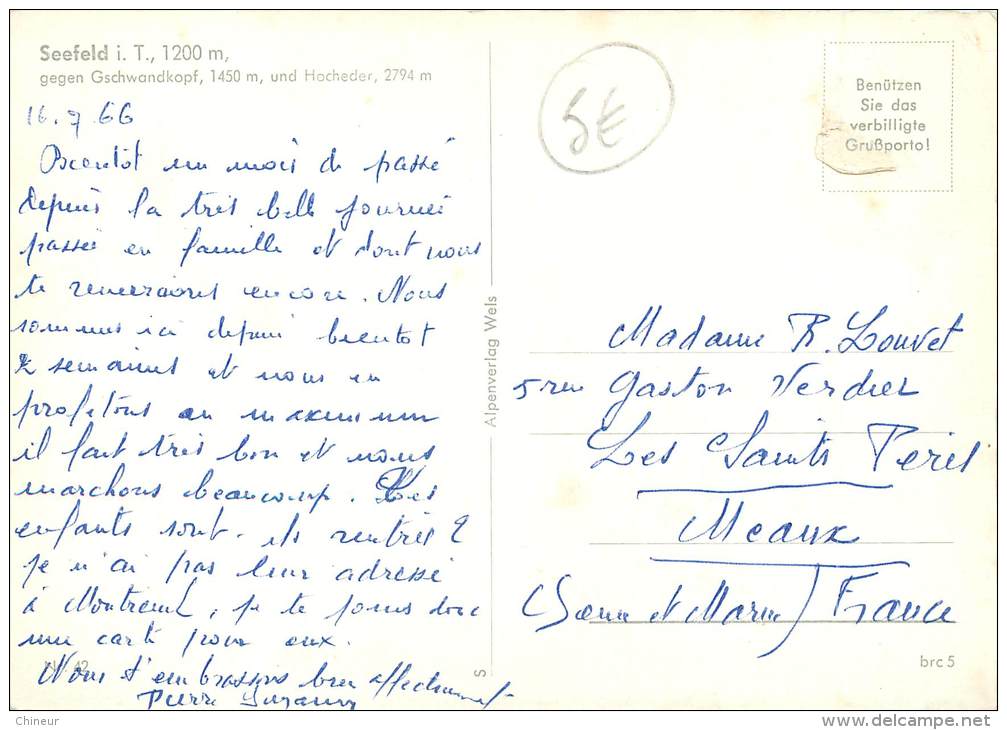 Seefeld i. T., 1200 m,
gegen Gschwandkopf, 1450 m, und Hocheder, 2794 m
16.7 66
Bientôt un mois de passé
depuis la très belle journée
passée en famille et dont nous
te remercions encore. Nous
sommes ici depuis bientôt
2 semaines et nous en
profitons au maximum
il fait très bon et nous
marchons beaucoup. Les
enfants sont-ils rentrés ?
je n'ai pas leur adresse
à Montreuil, je te joins donc
une carte pour eux.
Nous t'embrassons bien affectueusement
Pierre Suzanne
Nr. 42
Alpenverlag Wels
S
5€
Benützen
Sie das
verbilligte
Grußporto!
Madame R. Louvet
5 rue Gaston Verdier
Les Saints Pères
Meaux
(Seine et Marne) France
brc 5
Chineur
www.delcampe.net